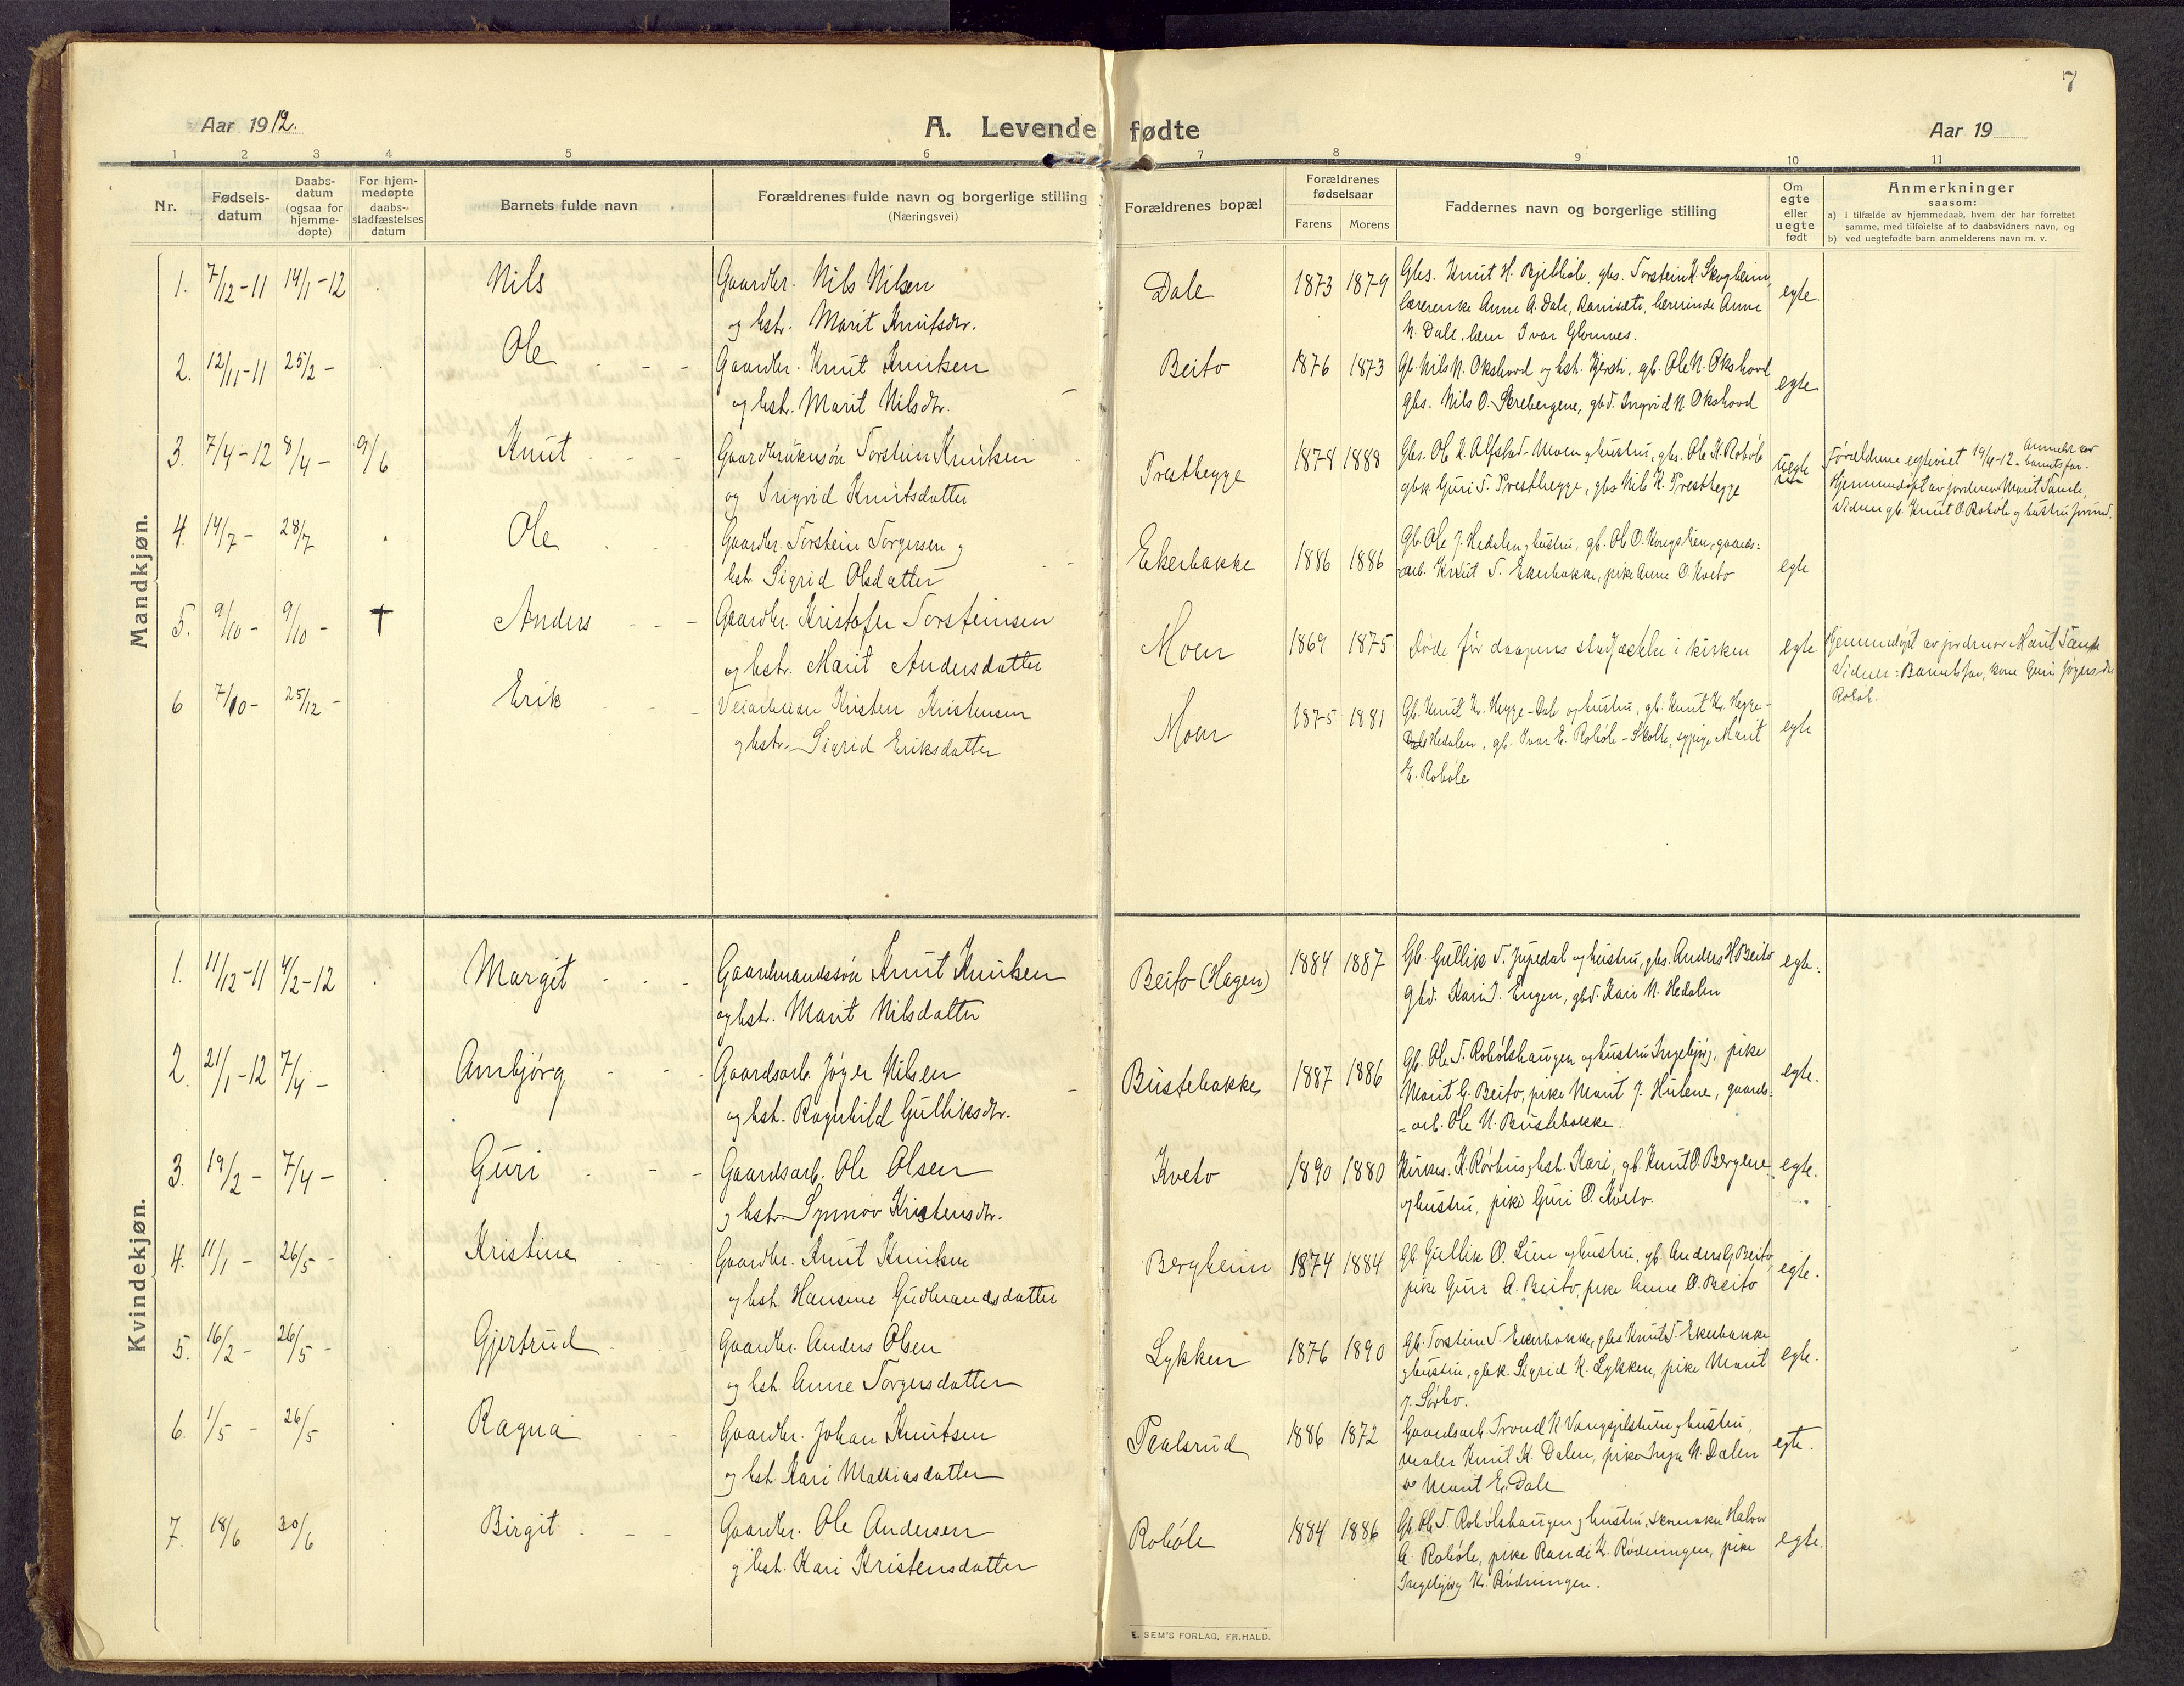 7
Aar 1912.
A. Levende fødte
Aar 19
1 2 3 4 5 6 7 8 9 10 11
Nr.
Fødsels-
datum
Daabs-
datum
(ogsaa for
hjemme-
døpte)
For hjem-
medøpte
daabs-
stadfæstelses
datum
Barnets fulde navn
Forældrenes fulde navn og borgerlige stilling
(Næringsvei)
Forældrenes bopæl
Forældrenes
fødselsaar
Farens Morens
Faddernes navn og borgerlige stilling
Om
egte
eller
uegte
født
Anmerkninger
saasom:
a) i tilfælde av hjemmedaab, hvem der har forrettet
samme, med tilføielse af to daabsvidners navn, og
b) ved uegtefødte barn anmelderens navn m. v.
Mandkjøn.
1. 7/12-11 14/1-12 Nils Gaardbr. Nils Nilsen
og hstr. Marit Knutsdr.
Dale 1873 1879 Gbs. Knut H. Bjelbøle, gbs. Torstein K. Skogheim,
lærerenke Anne A. Dale, Kamisæti, lærerinde Anne
N. Dale, lærer Ivar Glomnes.
egte.
2. 12/11-11 25/2- Ole Gaardbr. Knut Knutsen
og hstr. Marit Nilsdtr.
Beito 1876 1873 Gb. Nils N. Okshovd og hstr. Kjersti, gb. Ole N. Okshovd
gbs. Nils O. Skrebergene, gbd. Ingrid N. Okshovd
egte
3. 7/4-12 8/4- 9/6 Knut Gaardbrukersøn Torstein Knutsen
og Ingrid Knutsdatter
Præsthegge 1878 1888 Gbs. Ole K. Alfstad-Moen og hustru, gbs. Ole K. Robøle
gbk. Guri T. Præsthegge, gbs. Nils K. Præsthegge
uegte
Forældrene egteviet 19/4-12. Anmelder var
barnets far.
Hjemmedøpt av jordmor Marit Tande,
Vidner gb. Knut O. Robøle og hustru Jorund.
4. 14/7- 28/7 Ole Gaardbr. Torstein Torgersen og
hstr. Sigrid Olsdatter
Ekerbakke 1886 1886 Gb. Ole J. Hedalen og hustru, gb. Ole O. Kongslien, gaards=
arb. Knut T. Ekerbakke, pike Anne O. Kveto
egte
5. 9/10- 9/10- † Anders Gaardbr. Kristofer Torsteinsen
og hstr. Marit Andersdatter
Moen 1869 1875 Døde før daapens stadfæstelse i kirken
egte
Hjemmedøpt av jordmor Marit Tande
Vidner: Barnets far, kone Guri Jøgersdtr
Robøle.
6 7/10- 25/12- Erik Veiarbeider Kristen Kristensen
og hstr. Sigrid Eriksdatter
Moen 1875 1881 Gb. Knut Kr. Hegge-Dale og hustru, gb. Knut Kr. Hegge-
Hedalen, gb. Ivar E. Robøle-Skolte, sypige Marit
E. Robøle
egte
Kvindekjøn.
1. 11/12-11 4/2-12 Margit Gaardmandssøn Knut Knutsen
og hstr. Marit Nilsdatter
Beito (Hagen) 1884 1887 Gb. Gullik T. Jupedal og hustru, gbs. Anders H. Beito
gbd. Kari I. Engen, gbd. Kari N. Hedalen
egte.
2. 21/1-12 7/4- Ambjørg Gaardsarb. Jøger Nilsen
og hst. Ragnhild Gulliksdr.
Bustebakke 1887 1886 Gb. Ole T. Robølshaugen og hustru Ingebjørg, pike
Marit G. Beito, pike Marit J. Hulene, gaards=
=arb. Ole N. Bustebakke.
egte.
3. 19/2- 7/4- Guri Gaardsarb. Ole Olsen
og hstr. Synnøv Kristensdr.
Kveto 1890 1880 Kirkes. K. Rørhus og hst. Kari, gb. Knut O. Bergene
og hustru, pike Guri O. Kveto.
egte.
4. 11/1- 26/5- Kristine Gaardbr. Knut Knutsen
og hst. Hansine Gudbrandsdatter
Bergheim 1874 1884 Gb. Gullik O. Lien og hustru, gb. Anders G. Beito,
pike Guri A. Beito, pike Anne O. Beito
egte.
5. 16/2- 26/5- Gjertrud Gaardbr. Anders Olsen
og hst. Anne Torgersdatter
Lykken 1876 1890 Gb. Torstein T. Ekerbakke, gbs. Knut T. Ekerbakke
og hustru, gbk. Sigrid K. Lykken, pike Marit
J. Sørbo.
egte.
6. 1/5- 26/5 Ragna Gaardbr. Johan Knutsen
og hst. Kari Mathiasdatter
Paalsrud 1886 1872 Gaardsarb. Trond K. Vangsjelstuen og hustru,
maler Knut K. Dalen, pike Inga N. Dalen
do Marit E. Dale
egte.
7. 18/6 30/6 Birgit Gaardbr. Ole Andersen
og hst. Kari Kristensdatter
Robøle 1884 1886 Gb. Ole T. Robølshaugen og hustru, skomaker Halvor
A. Robøle, pike Randi K. Rødningen, pike
Ingebjørg K. Rødningen.
egte.
E. SEM'S FORLAG, FR.HALD.